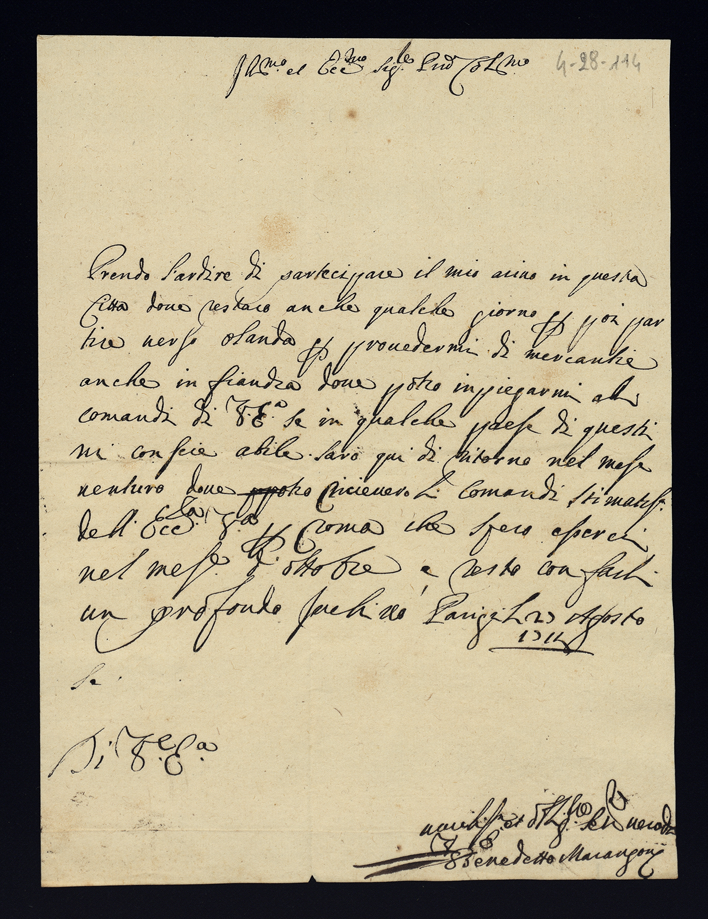 Ill.mo et Ecc.mo Sig.re Pró Col.mo
4-28-114
Prendo l'ardire di partecipare il mio arivo in questa
Citta dove restaro anche qualche giorno p poi par
tire verso olanda p provedermi di mercantie
anche in fiandra dove potro inpiegarmi alli
comandi di V. E.a se in qualche paese di questi
mi conscie abile saro qui di ritorno nel mese
venturo dove riceverò li comandi stimatiss.
dell' Ecc.za V.a p roma che spero esserci
nel mese di ottobre e resto con farli
un profondo inchino Parigi li 23 Agosto
1714
Di V.E.a
Benedetto Marangoni